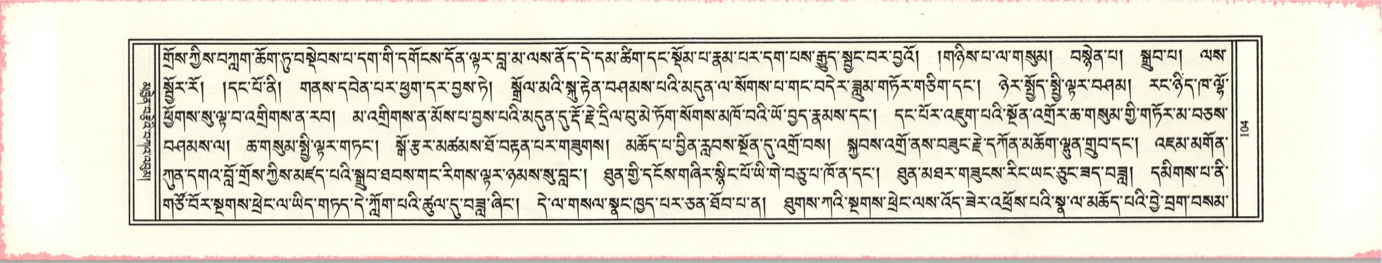 གྲོས་ཀྱིས་བཀླག་ཆོག་ཏུ་བསྡེབས་པ་དག་གི་དགོངས་དོན་ལྟར་བླ་མ་ལས་ནོད་དེ་དམ་ཚིག་དང་སྡོམ་པ་རྣམ་པར་དག་པས་རྒྱུད་སྦྱང་བར་བྱའོ། །གཉིས་པ་ལ་གསུམ། བསྙེན་པ། སྒྲུབ་པ། ལས་
སྦྱོར་རོ། །དང་པོ་ནི། གནས་དབེན་པར་ཕྱག་དར་བྱས་ཏེ། སྒྲོལ་མའི་སྐུ་རྟེན་བཤམས་པའི་མདུན་ལ་སོགས་པ་གང་བདེར་ཟླུམ་གཏོར་གཅིག་དང་། ཉེར་སྤྱོད་སྤྱི་ལྟར་བཤམ། རང་ཉིད་ཁ་ལྷོ་
ཕྱོགས་སུ་ལྟ་བ་འགྲིགས་ན་རབ། མ་འགྲིགས་ན་མོས་པ་བྱས་པའི་མདུན་དུ་རྡོ་རྗེ་དྲིལ་བུ་མེ་ཏོག་སོགས་མཁོ་བའི་ཡོ་བྱད་རྣམས་དང་། དང་པོར་འཇུག་པའི་སྔོན་འགྲོར་ཆ་གསུམ་གྱི་གཏོར་མ་བཅས་
བཤམས་ལ། ཆ་གསུམ་སྤྱི་ལྟར་གཏང་། སྒོ་རྩར་མཚམས་ཐོ་བརྟན་པར་གཟུགས། མཆོད་པ་བྱིན་རླབས་སྔོན་དུ་འགྲོ་བས། སྐྱབས་འགྲོ་ནས་བཟུང་རྗེ་དཀོན་མཆོག་ལྷུན་གྲུབ་དང་། འཇམ་མགོན་
ཀུན་དགའ་བློ་གྲོས་ཀྱིས་མཛད་པའི་སྒྲུབ་ཐབས་གང་རིགས་ལྟར་ཉམས་སུ་བླང་། ཐུན་གྱི་དངོས་གཞིར་སྙིང་པོ་ཡི་གེ་བཅུ་པ་ཁོ་ན་དང་། ཐུན་མཐར་གཟུངས་རིང་ཡང་ཅུང་ཟད་བཟླ། དམིགས་པ་ནི་
གཙོ་བོར་སྔགས་ཕྲེང་ལ་ཡིད་གཏད་དེ་ཀློག་པའི་ཚུལ་དུ་བཟླ་ཞིང་། དེ་ལ་གསལ་སྣང་ཁྱད་པར་ཅན་ཐོབ་པ་ན། ཐུགས་ཀའི་སྔགས་ཕྲེང་ལས་འོད་ཟེར་འཕྲོས་པའི་སྣ་ལ་མཆོད་པའི་བྱེ་བྲག་བསམ་
104